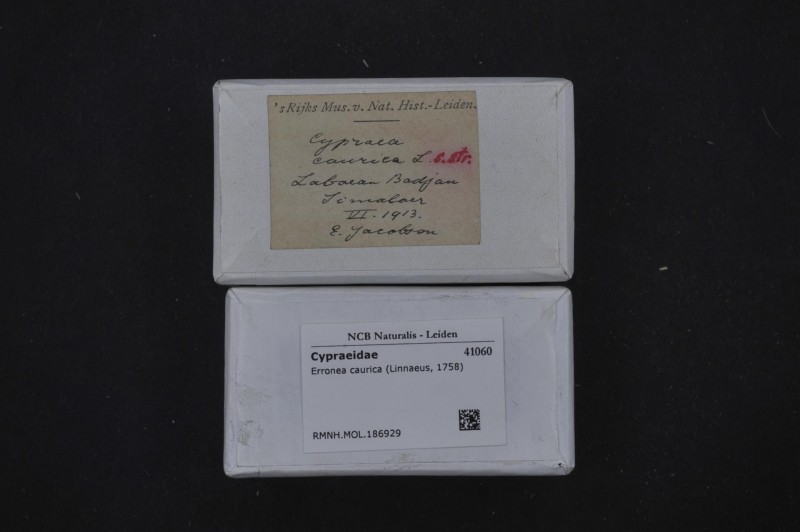 's Rijks Mus. v. Nat. Hist.-Leiden.
Cypraea
caurica L. s. str.
Labocan Badjau
Simaloer
VI. 1913.
E. Jacobson
NCB Naturalis - Leiden
Cypraeidae 41060
Erronea caurica (Linnaeus, 1758)
RMNH.MOL.186929